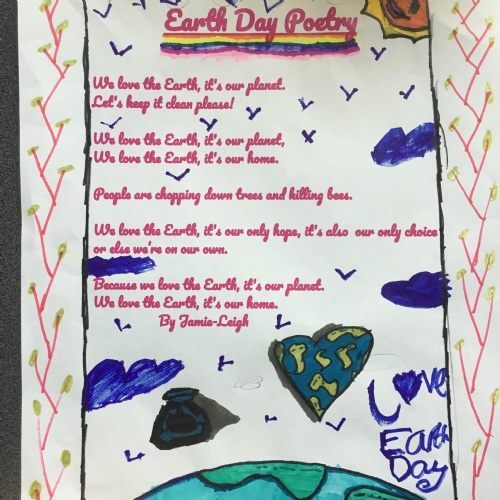 Earth Day Poetry
We love the Earth, it's our planet.
Let's keep it clean please!
We love the Earth, it's our planet,
We love the Earth, it's our home.
People are chopping down trees and killing bees.
We love the Earth, it's our only hope, it's also our only choice
or else we're on our own.
Because we love the Earth, it's our planet.
We love the Earth, it's our home.
By Jamie-Leigh
Love
Earth
Day